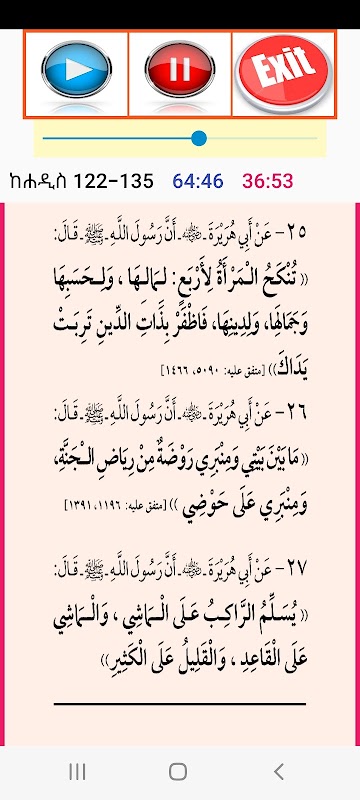 Exit
ከሐዲስ 122-135 64:46 36:53
٢٥- عَنْ أَبِي هُرَيْرَةَ ـ رضي الله عنه ـ أَنَّ رَسُولَ اللَّهِ ـ ﷺ ـ قَالَ:
(( تُنْكَحُ الْمَرْأَةُ لِأَرْبَعٍ: لِمَالِهَا ، وَلِحَسَبِهَا
وَجَمَالِهَا، وَلِدِينِهَا، فَاظْفَرْ بِذَاتِ الدِّينِ تَرِبَتْ
يَدَاكَ)) [متفق عليه: ٥٠٩٠، ١٤٦٦]
٢٦- عَنْ أَبِي هُرَيْرَةَ ـ رضي الله عنه ـ أَنَّ رَسُولَ اللَّهِ ـ ﷺ ـ قَالَ:
(( مَا بَيْنَ بَيْتِي وَمِنْبَرِي رَوْضَةٌ مِنْ رِيَاضِ الْجَنَّةِ،
وَمِنْبَرِي عَلَى حَوْضِي )) [متفق عليه: ١١٩٦، ١٣٩١]
٢٧- عَنْ أَبِي هُرَيْرَةَ ـ رضي الله عنه ـ أَنَّ رَسُولَ اللَّهِ ـ ﷺ ـ قَالَ:
(( يُسَلِّمُ الرَّاكِبُ عَلَى الْمَاشِي ، وَالْمَاشِي
عَلَى الْقَاعِدِ ، وَالْقَلِيلُ عَلَى الْكَثِيرِ))